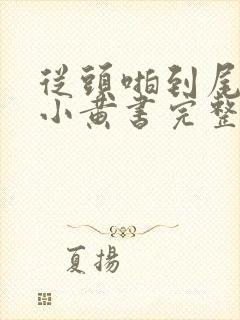 從頭啪到尾
小黃書完整
夏揚